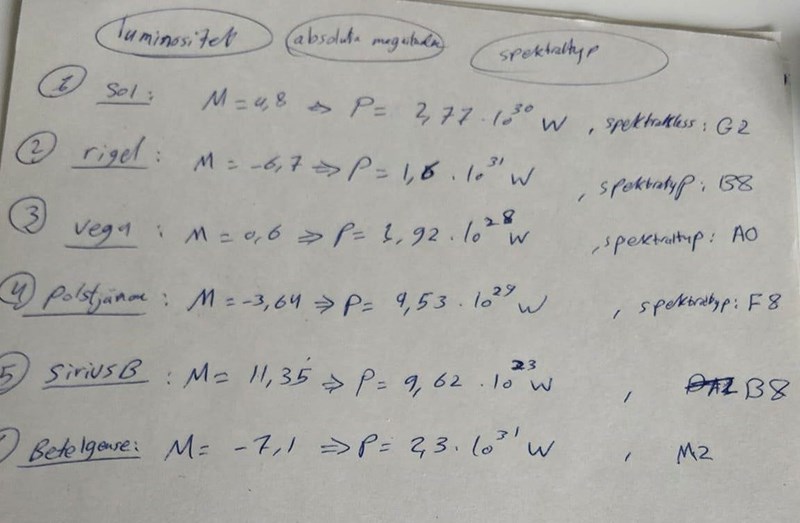 luminositet absoluta magnituden spektraltyp
① Sol: M = 4,8 => P = 2,77 · 10^30 W, spektralklass: G2
② rigel: M = -6,7 => P = 1,6 · 10^31 W, spektraltyp: B8
③ vega: M = 0,6 => P = 3,92 · 10^28 W, spektraltyp: A0
④ polstjärnan: M = -3,64 => P = 9,53 · 10^29 W, spektraltyp: F8
⑤ Sirius B: M = 11,35 => P = 9,62 · 10^23 W, B8
Betelgeuse: M = -7,1 => P = 2,3 · 10^31 W, M2